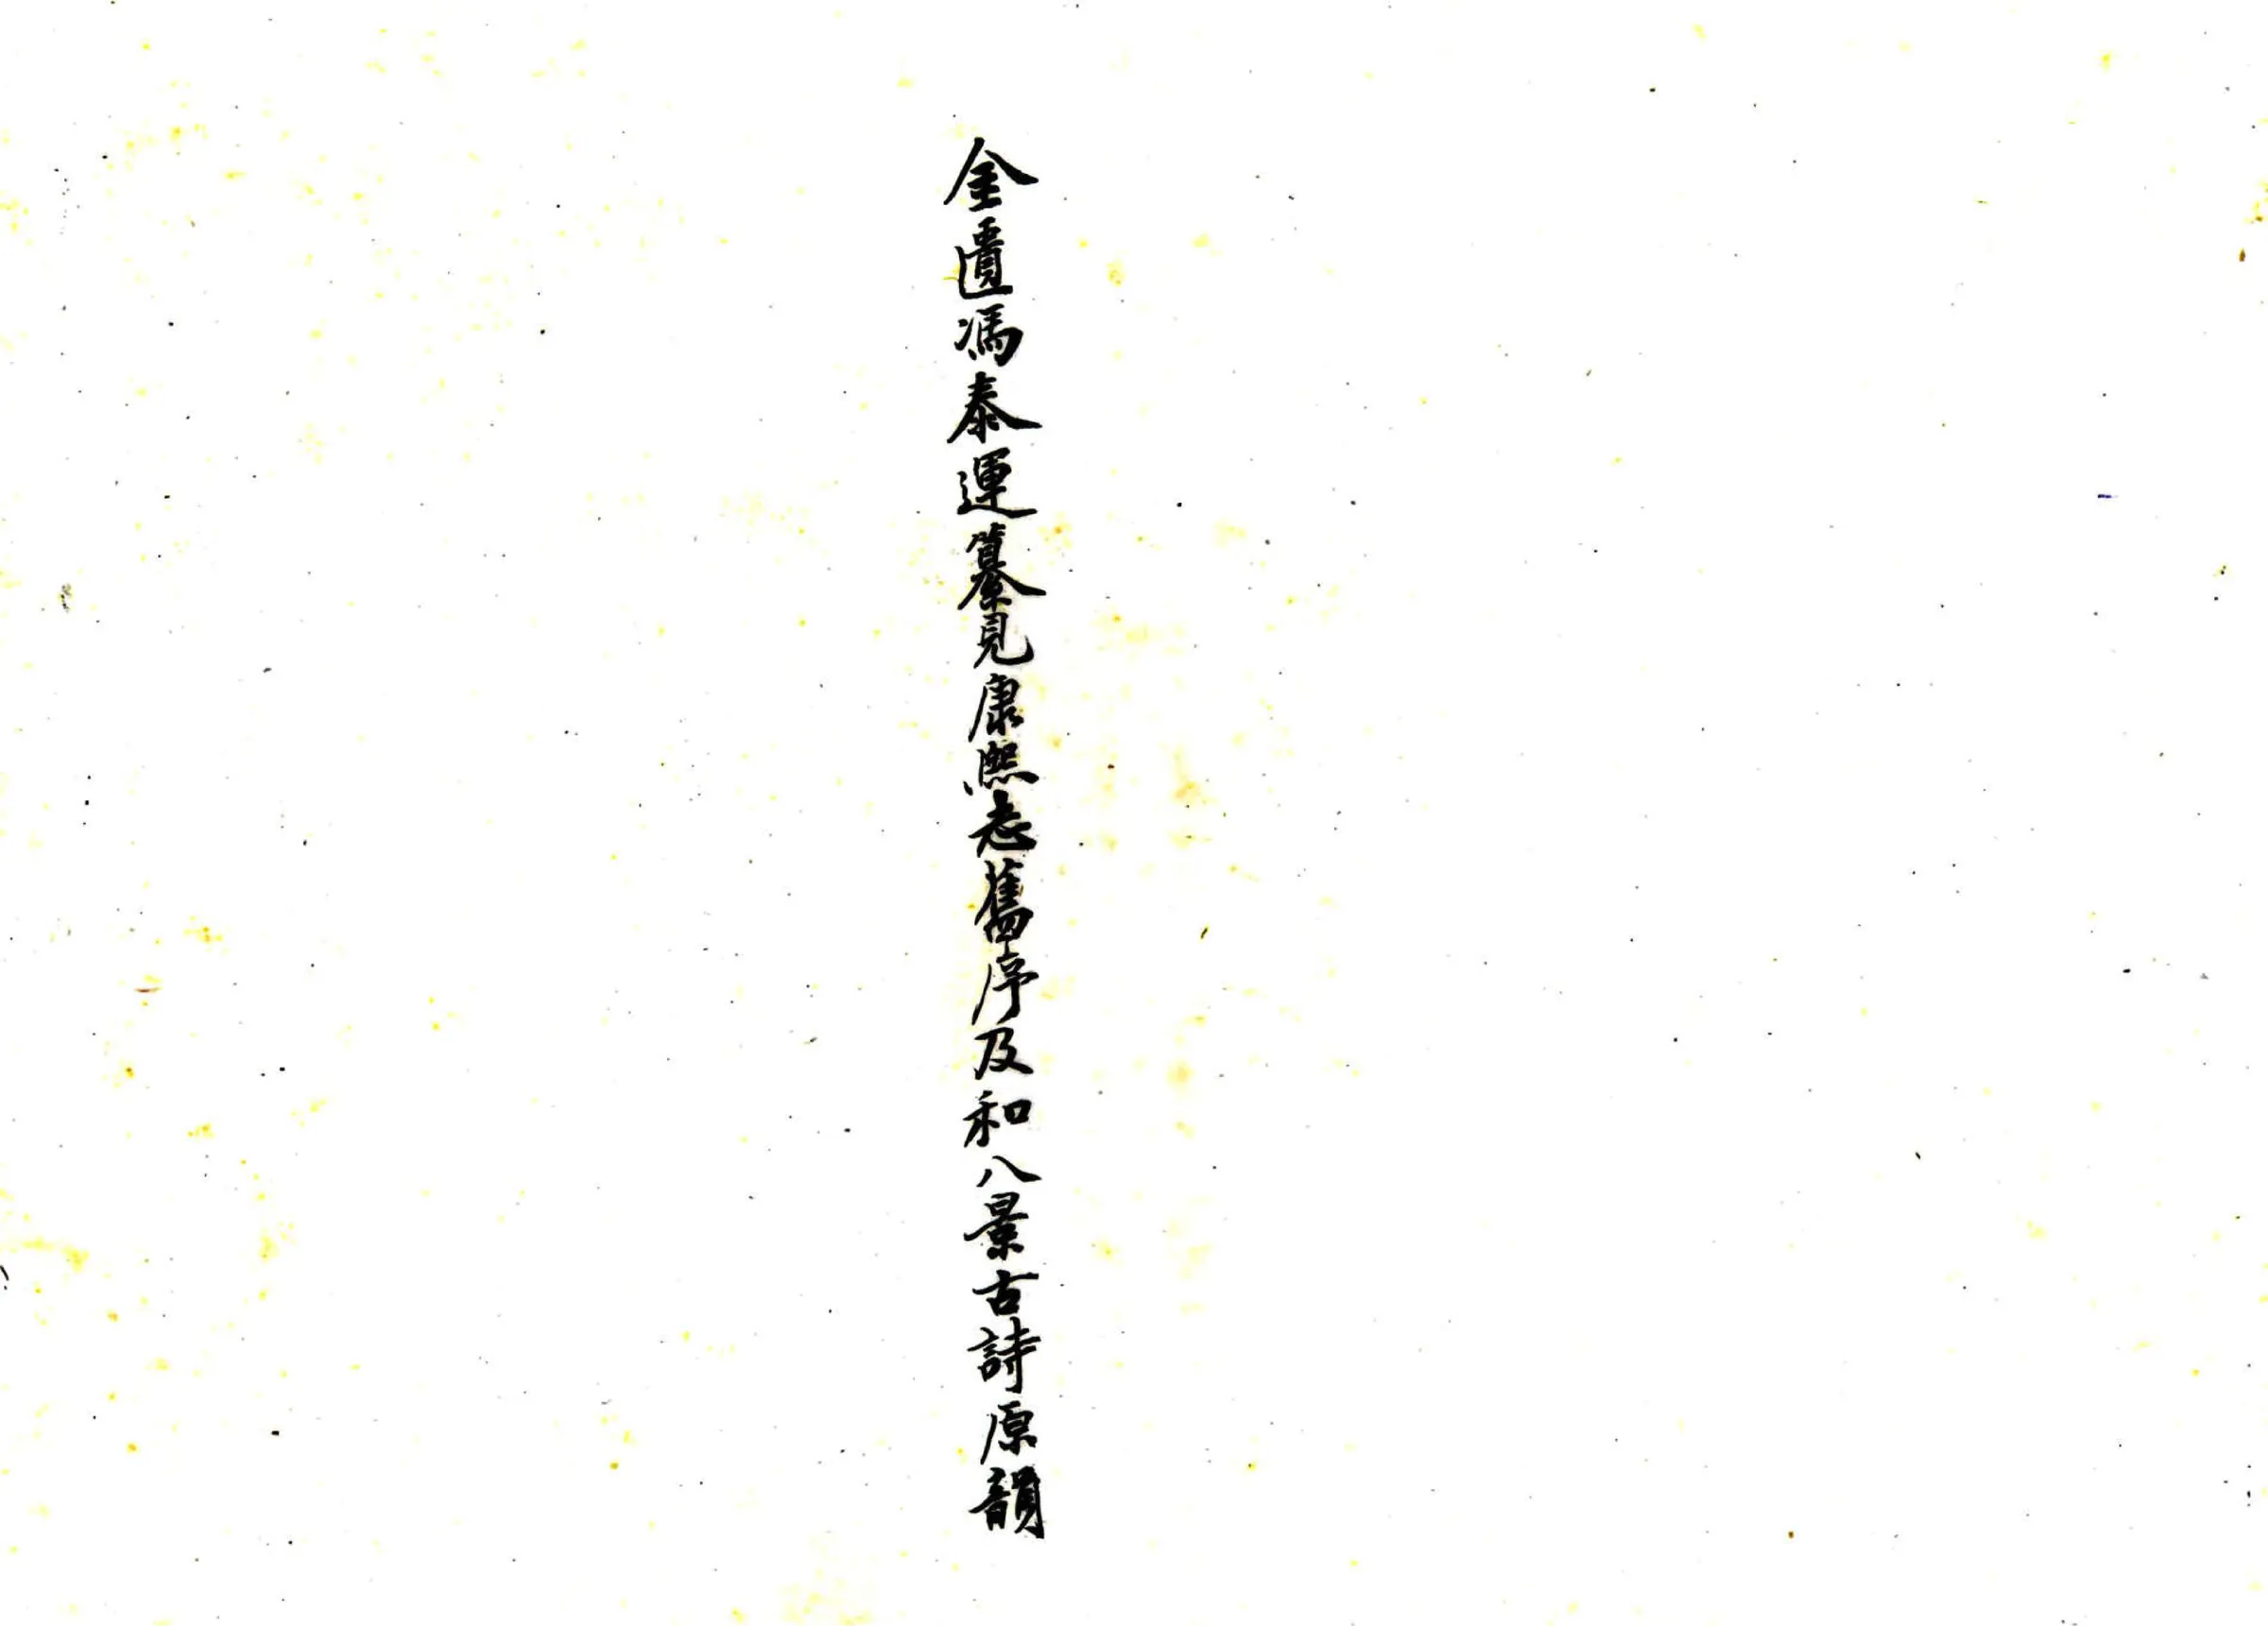 金匱馮泰運纂見康熙志舊序及和八景古詩原韻